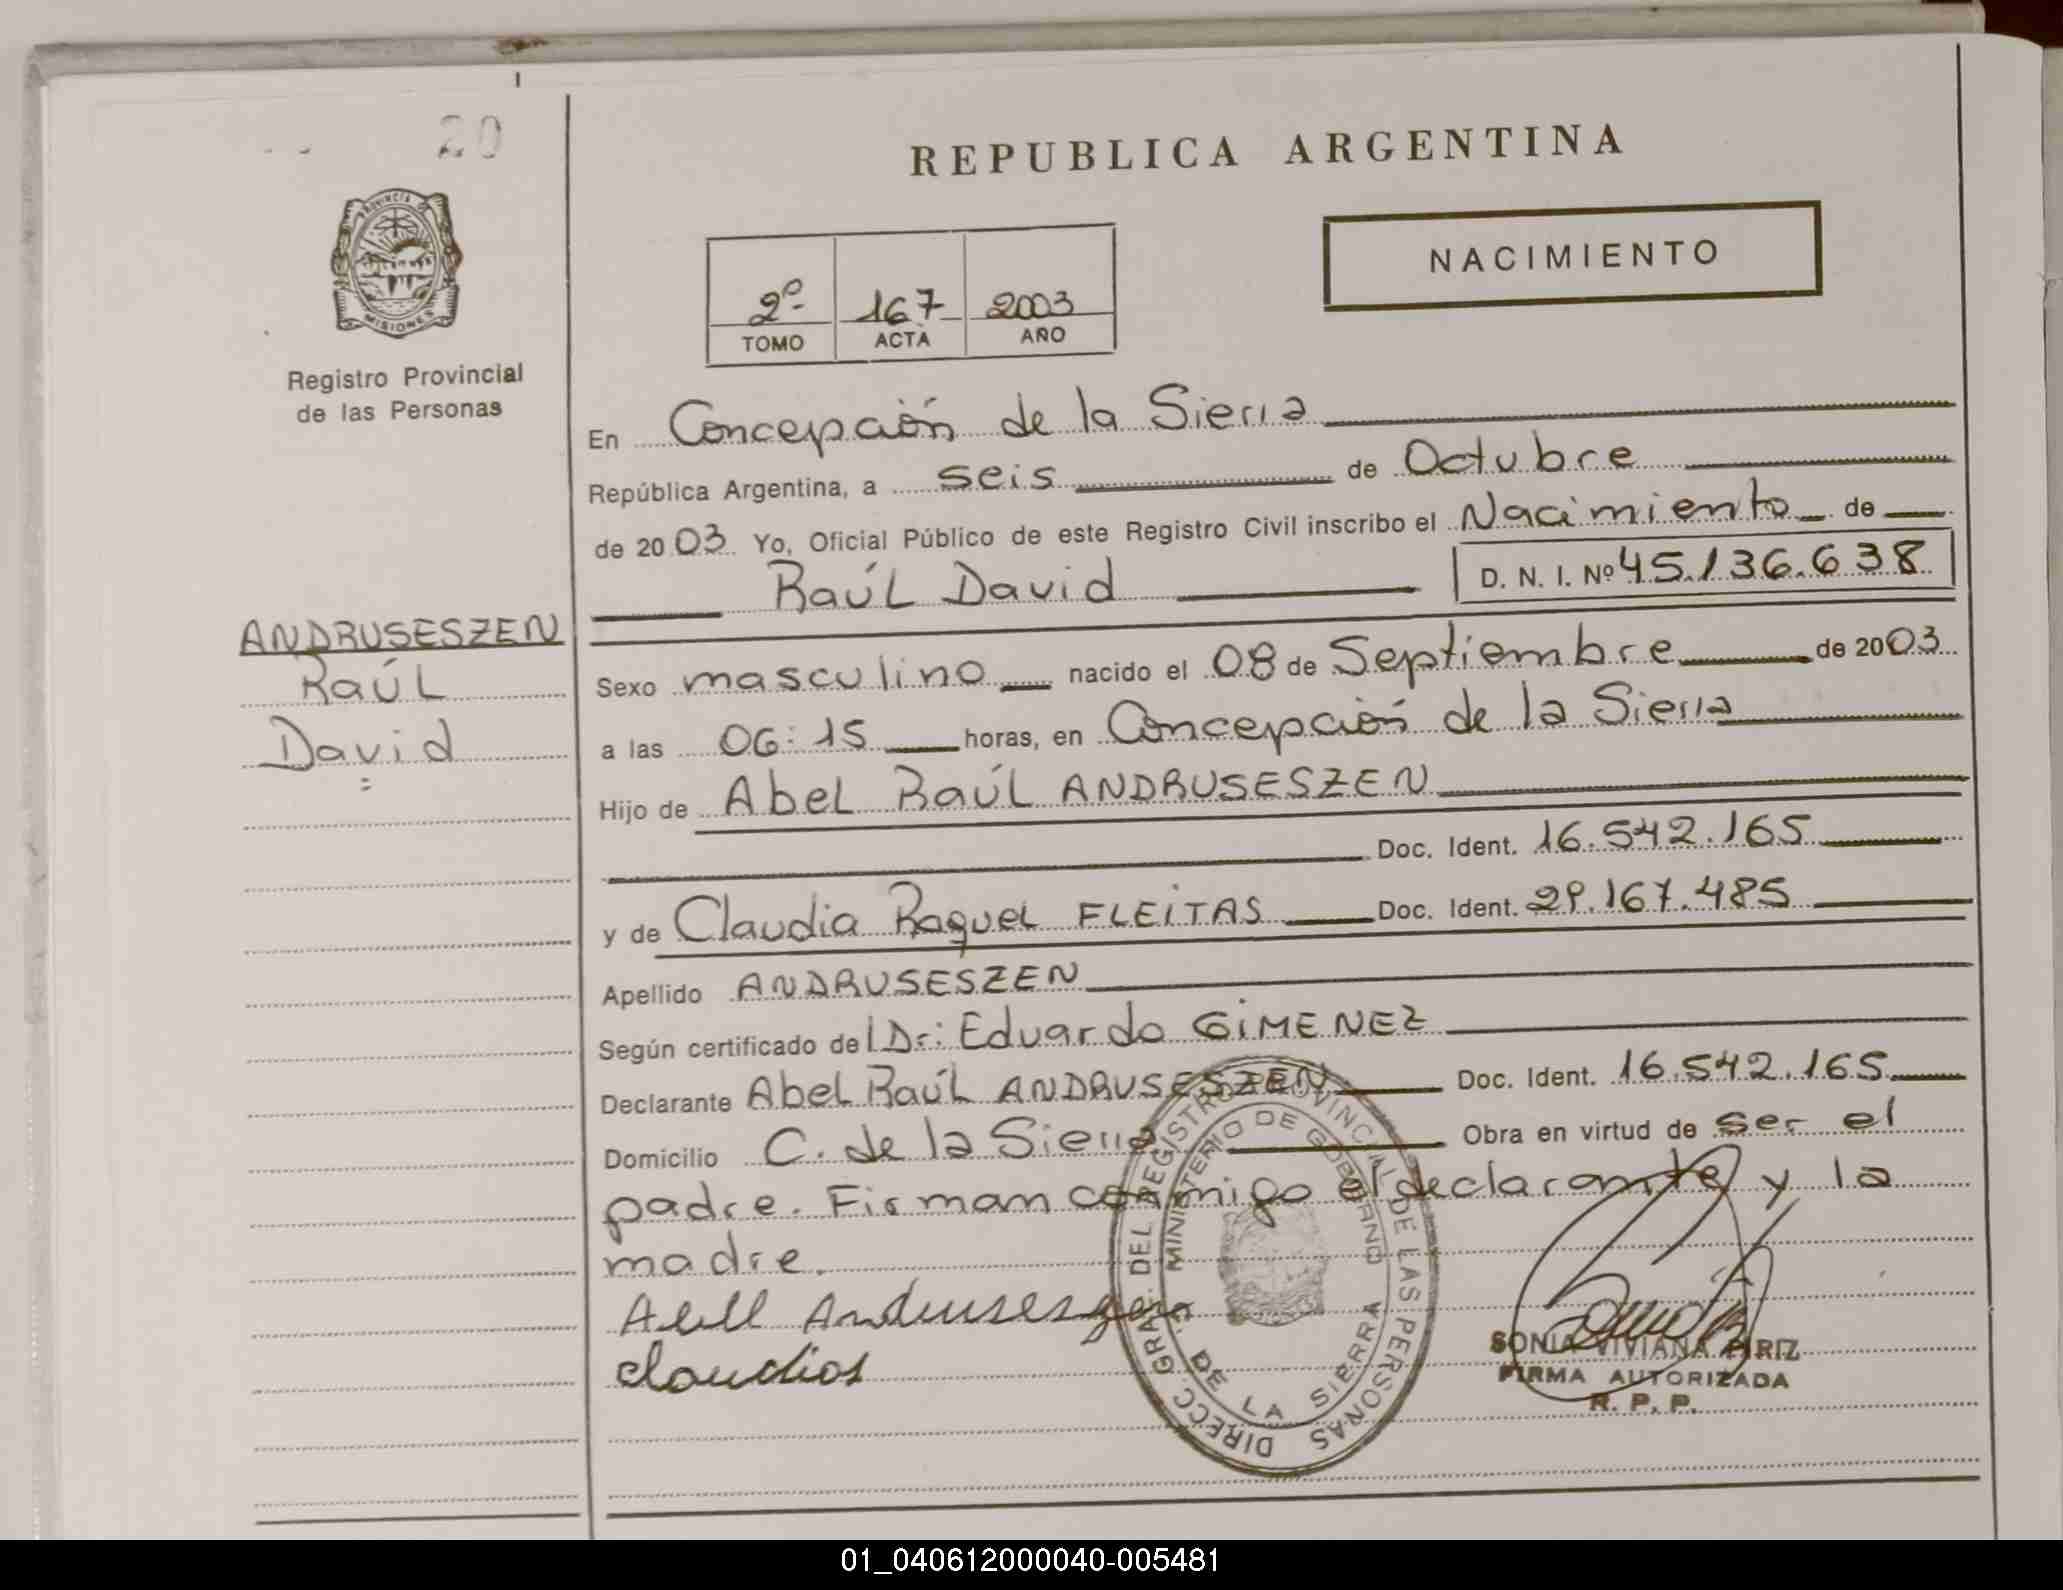 20
PROVINCIA DE
MISIONES
Registro Provincial
de las Personas
ANDRUSESZEN
Raúl
David
REPUBLICA ARGENTINA
NACIMIENTO
2º 167 2003
TOMO ACTA AÑO
En Concepción de la Sierra
República Argentina, a seis de Octubre
de 2003 Yo, Oficial Público de este Registro Civil inscribo el Nacimiento de
Raúl David D. N. I. Nº 45.136.638
Sexo masculino nacido el 08 de Septiembre de 2003
a las 06:15 horas, en Concepción de la Sierra
Hijo de Abel Raúl ANDRUSESZEN
Doc. Ident. 16.542.165
y de Claudia Raquel FLEITAS Doc. Ident. 29.167.485
Apellido ANDRUSESZEN
Según certificado del Dr: Eduardo GIMENEZ
Declarante Abel Raúl ANDRUSESZEN Doc. Ident. 16.542.165
Domicilio C. de la Sierra Obra en virtud de ser el
padre. Firman conmigo el declarante y la
madre.
Andruseszen
DIRECC. GRAL. DEL REGISTRO PROVINCIAL DE LAS PERSONAS
MINISTERIO DE GOBIERNO
C. DE LA SIERRA
SONIA VIVIANA PIRIZ
FIRMA AUTORIZADA
R. P. P.
01_040612000040-005481